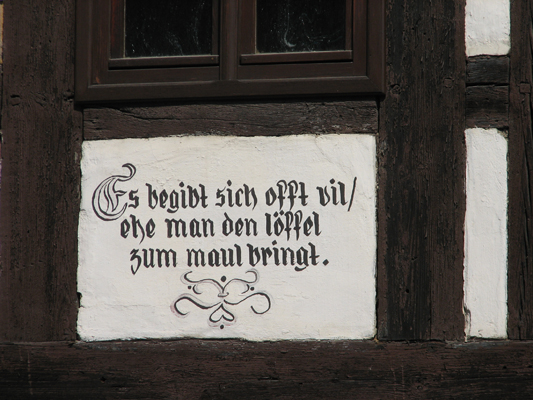 Es begibt sich offt vil/
ehe man den löffel
zum maul bringt.